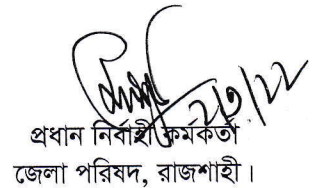 ২৩/২২
প্রধান নির্বাহী কর্মকর্তা
জেলা পরিষদ, রাজশাহী।